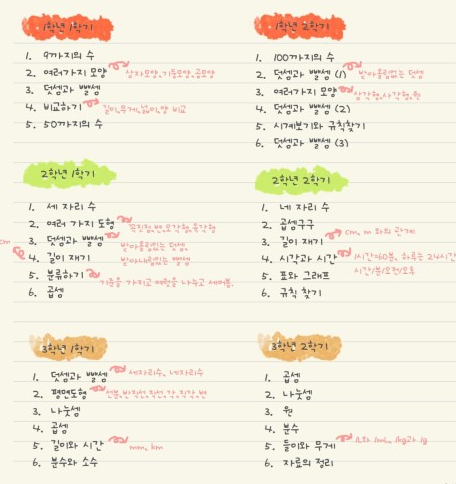 1학년 1학기
1. 9까지의 수
2. 여러가지 모양 상자모양, 기둥모양, 공모양
3. 덧셈과 뺄셈
4. 비교하기 길이, 무게, 넓이, 양 비교
5. 50까지의 수
1학년 2학기
1. 100까지의 수
2. 덧셈과 뺄셈 (1) 받아올림없는 덧셈
3. 여러가지 모양 삼각형, 사각형, 원
4. 덧셈과 뺄셈 (2)
5. 시계보기와 규칙찾기
6. 덧셈과 뺄셈 (3)
2학년 1학기
1. 세 자리 수
2. 여러 가지 도형
3. 덧셈과 뺄셈 받아올림있는 덧셈,
cm 4. 길이 재기 받아내림있는 뺄셈
5. 분류하기 기준을 가지고 여럿을 나누고 세어봄.
6. 곱셈
2학년 2학기
1. 네 자리 수
2. 곱셈구구
3. 길이 재기 cm, m 와의 관계
4. 시각과 시간 1시간=60분, 하루는 24시간
5. 표와 그래프 시간/분/오전/오후
6. 규칙 찾기
3학년 1학기
1. 덧셈과 뺄셈 세자리수, 네자리수
2. 평면도형 선분, 반직선, 직선, 각, 직각, 변
3. 나눗셈
4. 곱셈
5. 길이와 시간 mm, km
6. 분수와 소수
3학년 2학기
1. 곱셈
2. 나눗셈
3. 원
4. 분수
5. 들이와 무게 1L와 1mL, 1kg과 1g
6. 자료의 정리